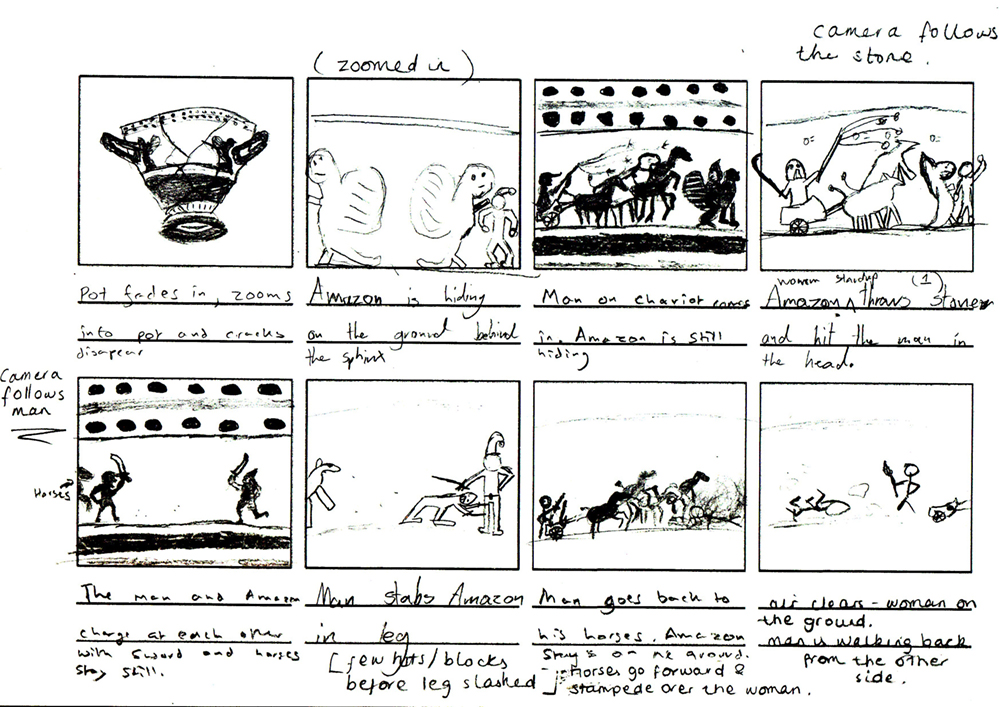 camera follows
the stone.
(zoomed in)
Pot fades in, zooms
into pot and cracks
disapear
Amazon is hiding
on the ground behind
the sphinx
Man on chariot comes
in. Amazon is still
hiding
women standup (1)
Amazon ^ throws stones
and hit the man in
the head.
Camera
follows
man
Horses
The man and Amazon
charge at each other
with sword and horses
stay still.
Man stabs Amazon
in leg
[few hits/blocks
before leg slashed
Man goes back to
his horses. Amazon
stays on the ground.
Horses go forward &
stampede over the woman.
air clears - woman on
the ground.
man is walking back
from the other
side.